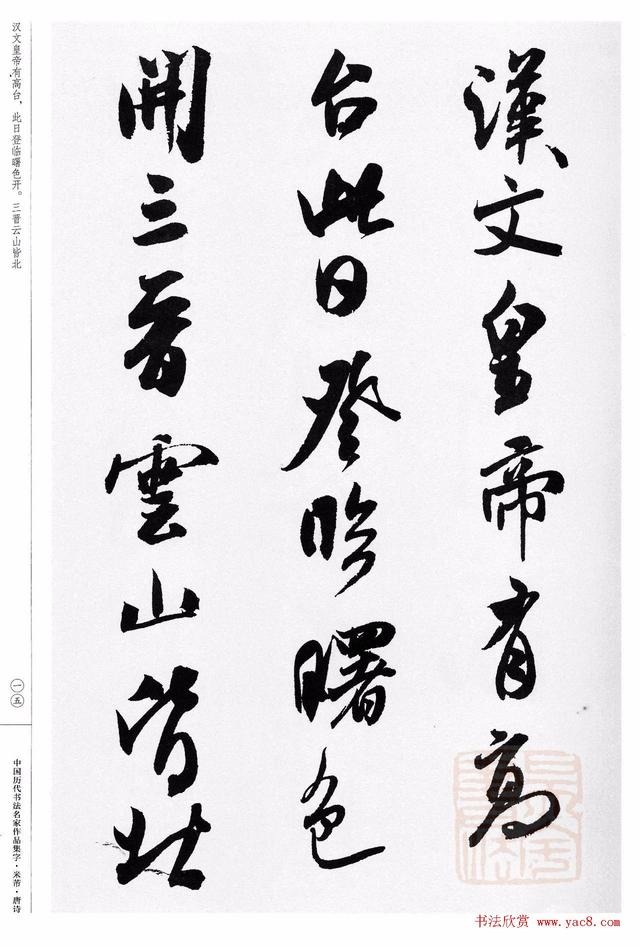 漢文皇帝有高
台此日登临曙色
開三晋雲山皆北
汉文皇帝有高台，此日登临曙色开。三晋云山皆北
一五
中国历代书法名家作品集字·米芾·唐诗
书法欣赏 www.yac8.com